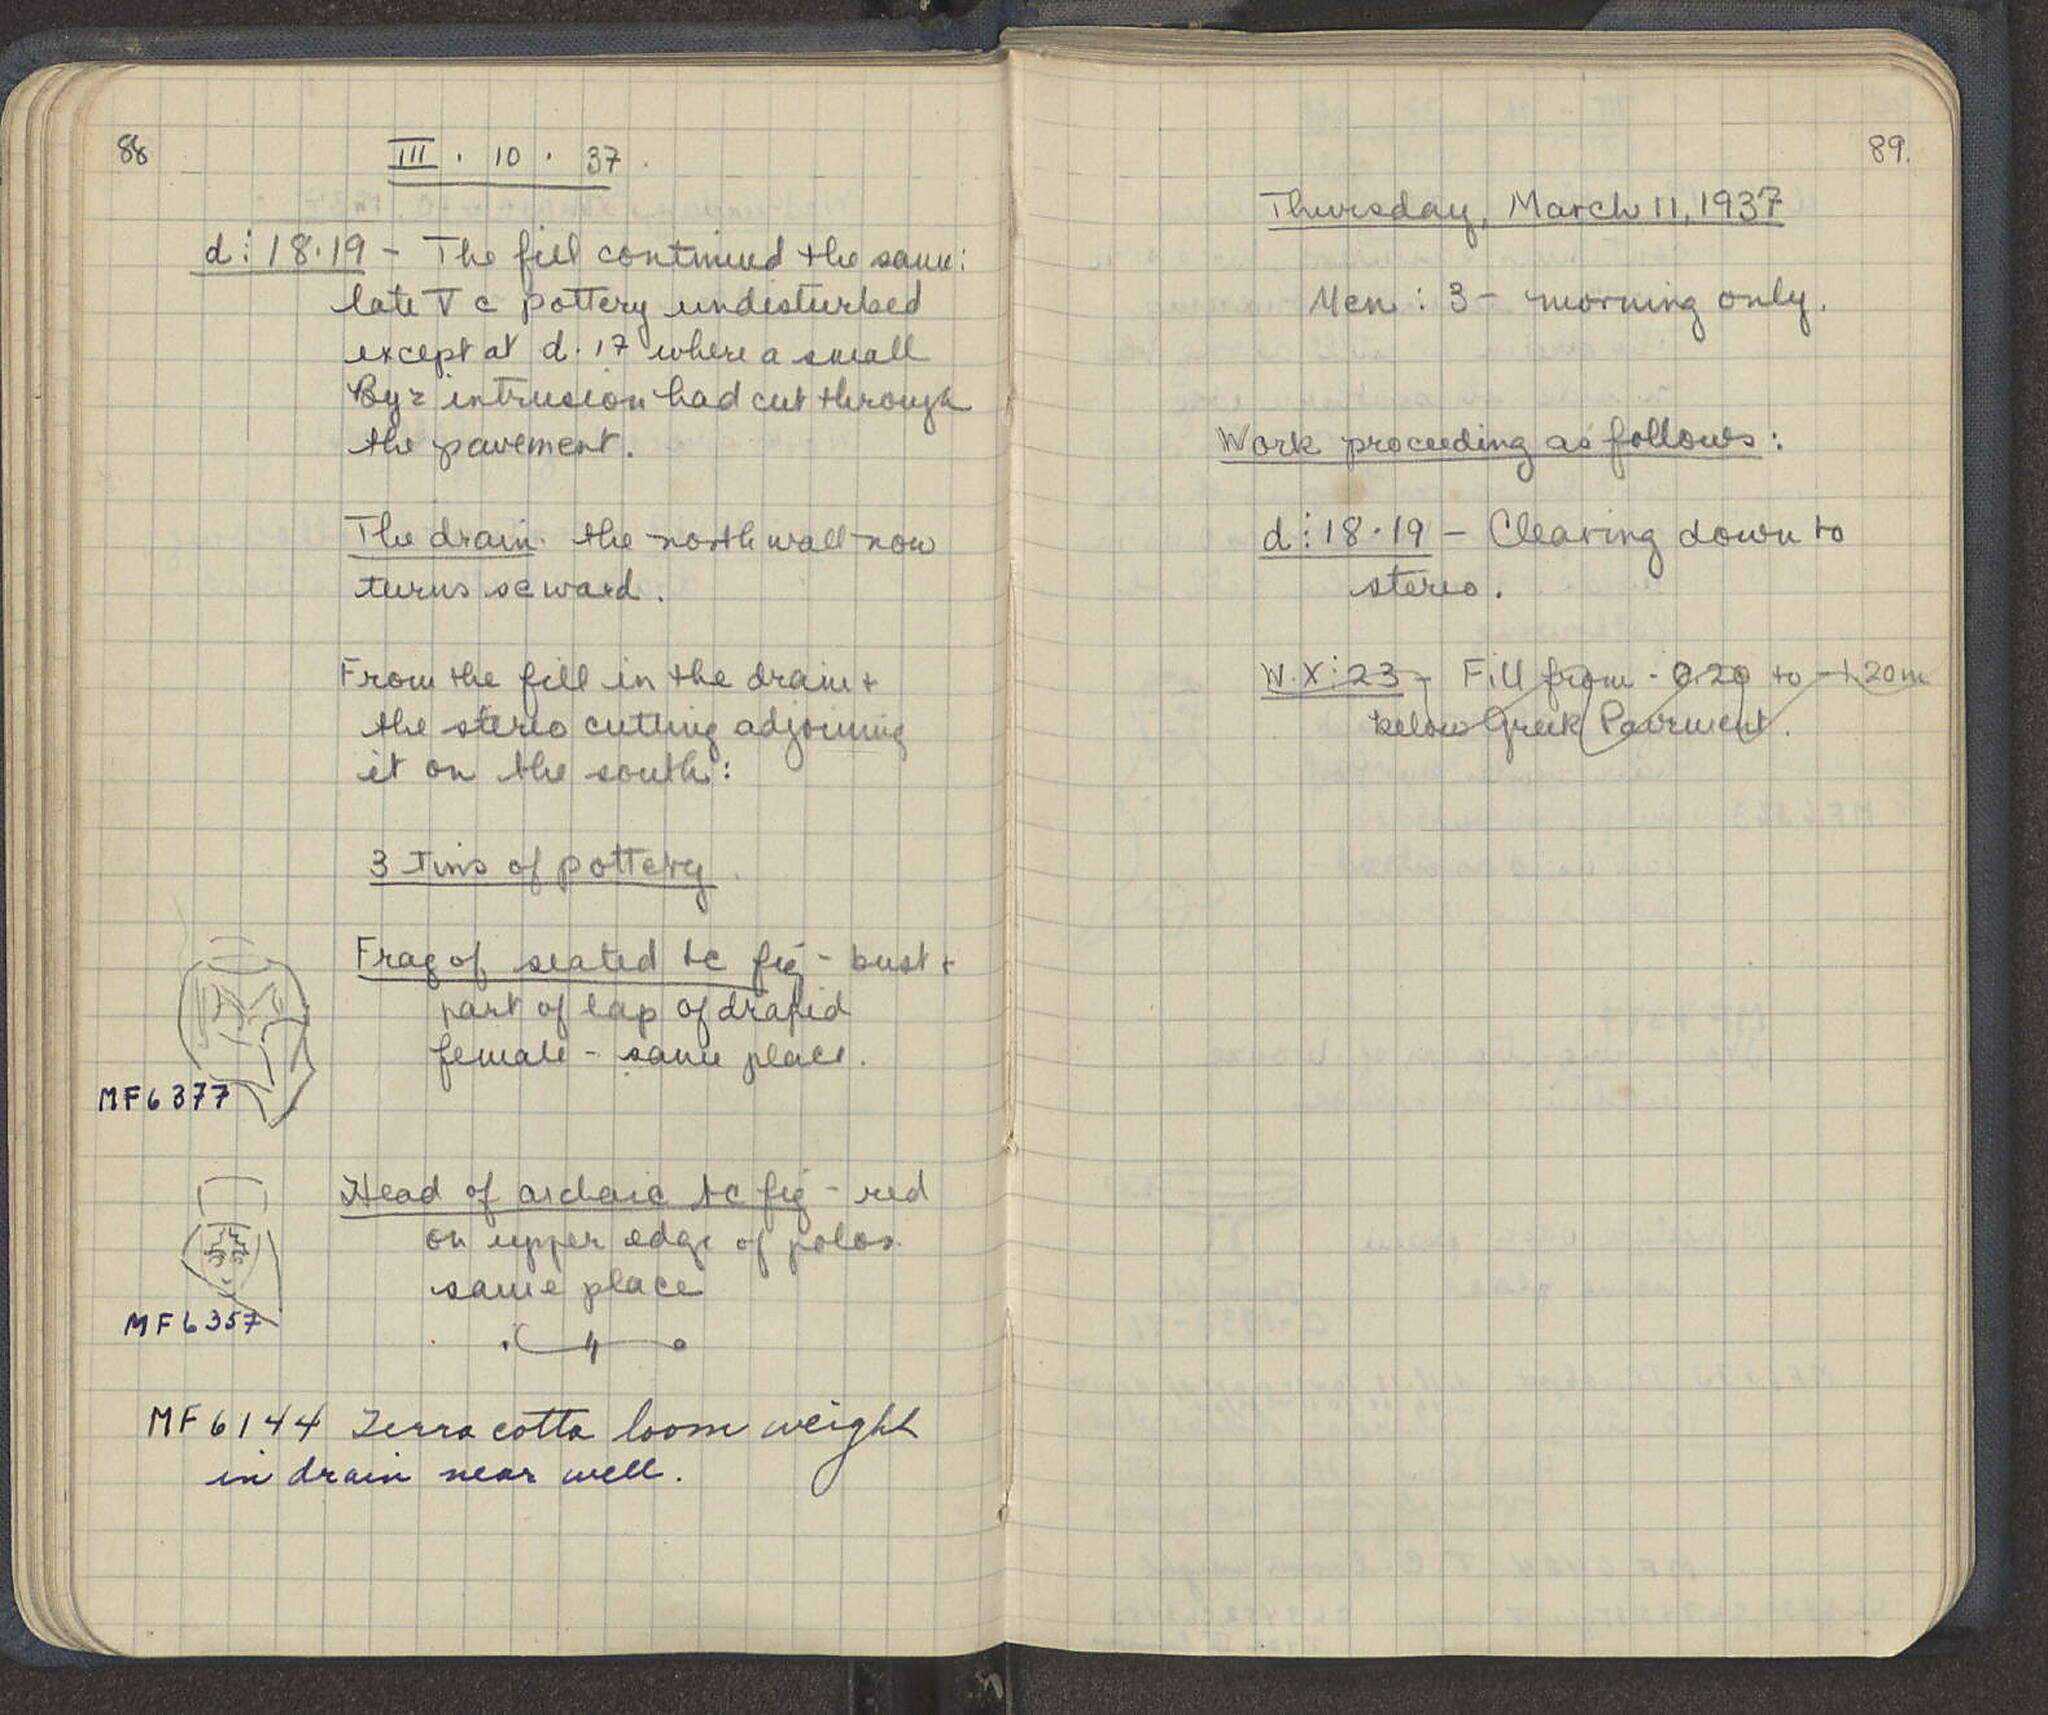 88
III . 10 . 37 .
d: 18.19 - The fill continued the same:
late V c pottery undisturbed
except at d. 17 where a small
Byz intrusion had cut through
the pavement.
The drain. the north wall now
turns se ward.
From the fill in the drain +
the stereo cutting adjoining
it on the south:
3 Tins of pottery.
Frag of seated tc fig - bust +
part of lap of draped
female - same place.
MF6377
Head of archaic tc fig - red
on upper edge of polos.
same place
MF6357
MF6144 Terra cotta loom weight
in drain near well.
89.
Thursday, March 11, 1937
Men: 3 - morning only.
Work proceeding as follows:
d: 18.19 - Clearing down to
stereo.
W.X: 23 - Fill from - 0.20 to -1.20m
below Greek Pavement.